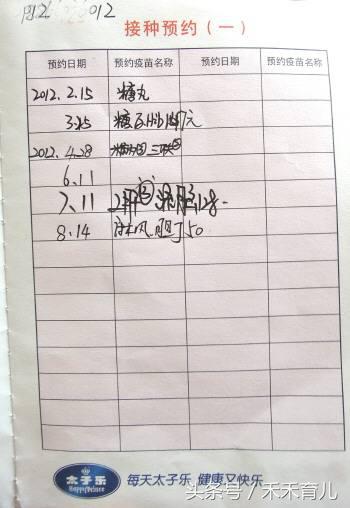 012
接种预约（一）
预约日期 预约疫苗名称 预约日期 预约疫苗名称
2012.2.15 糖丸
3.15 糖 Hib 元
2012.4.28 三联
6.11
7.11 乙肝 128-
8.14 麻风 50
太子乐 每天太子乐 健康又快乐
HappyPrince
头条号 / 禾禾育儿